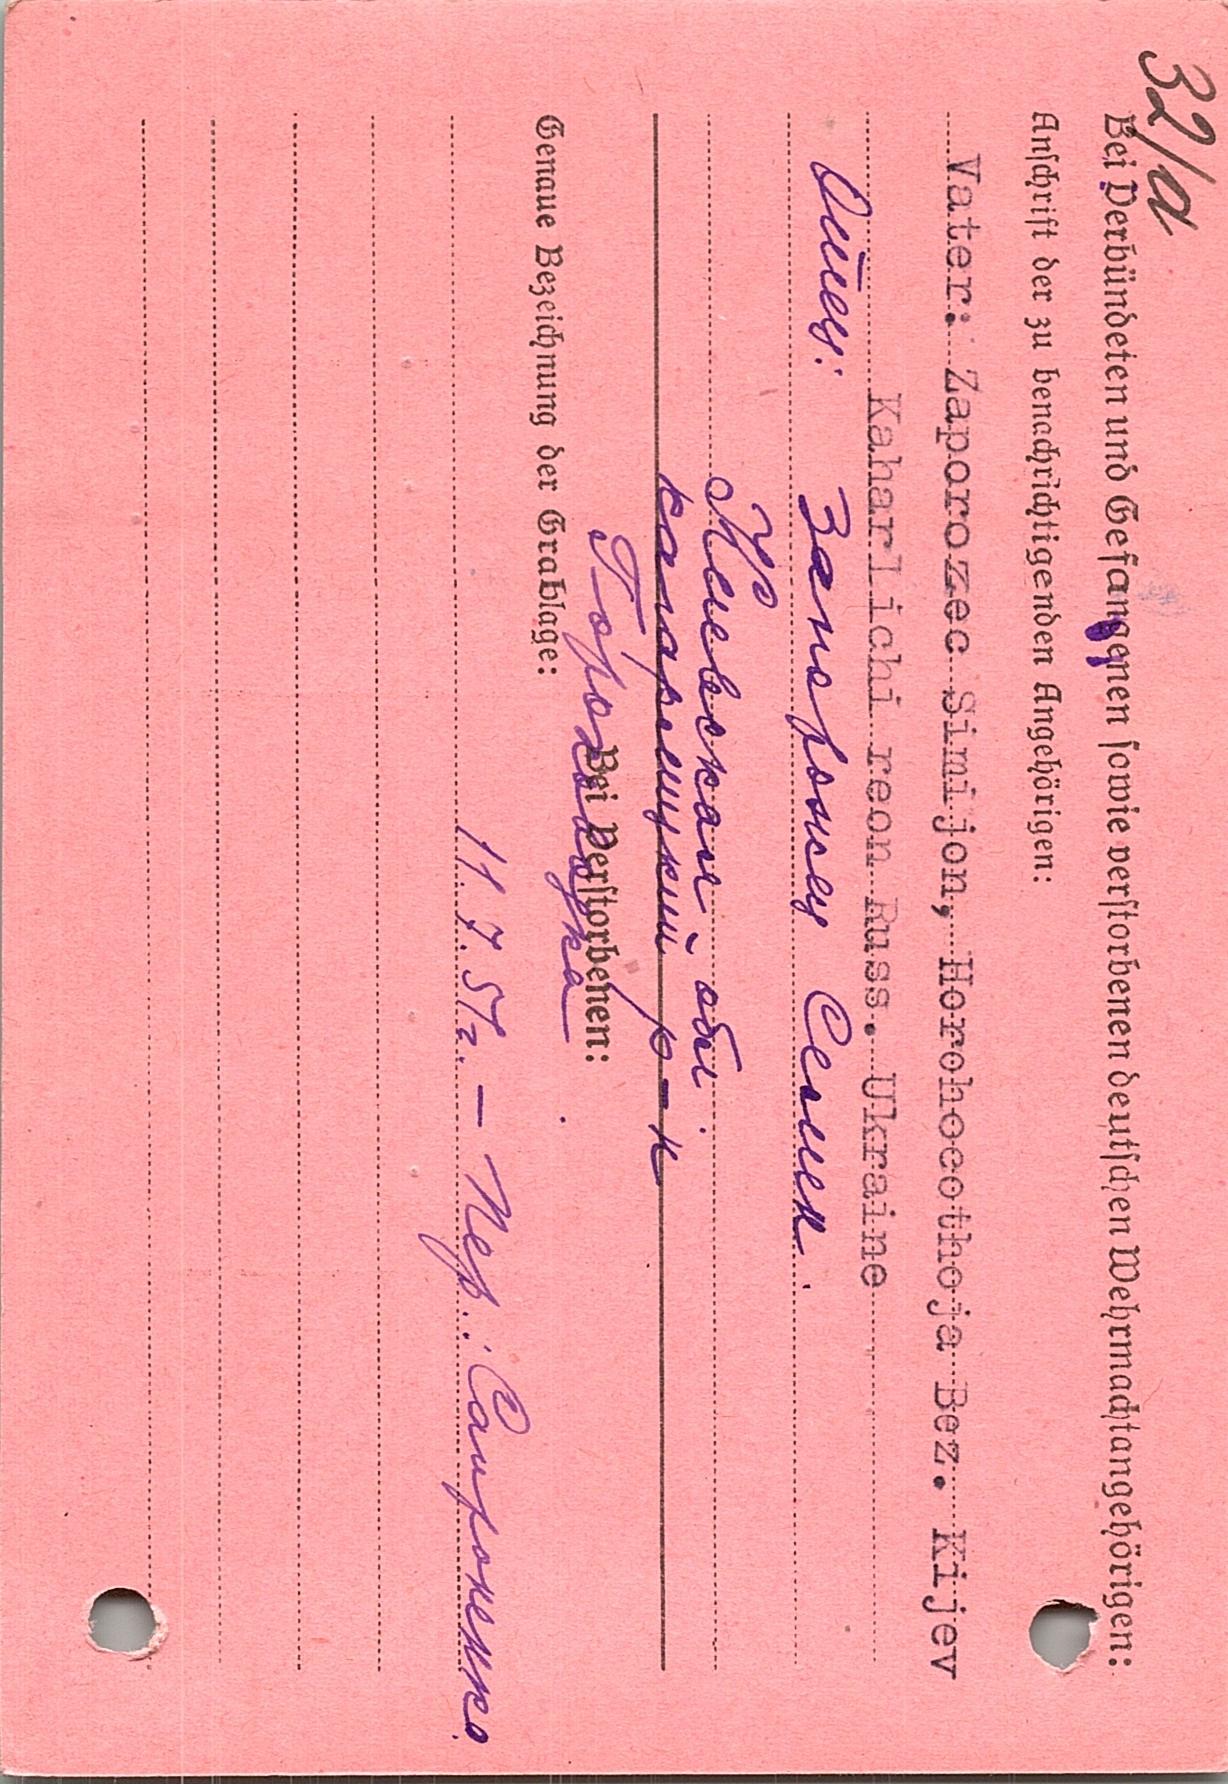 32/а
Bei Verbündeten und Gefangenen sowie verstorbenen deutschen Wehrmachtangehörigen:
Anschrift der zu benachrichtigenden Angehörigen:
Vater: Zaporozec Simijon, Horohocothoja Bez. Kijev
Kaharlichi reon Russ. Ukraine
Отец: Запорожец Семен.
Киевская обл.
кагарлицкий р-н
Гороховатка.
Bei Verstorbenen:
Genaue Bezeichnung der Grablage:
11.7.51г. — Пер.: Сапроненко.